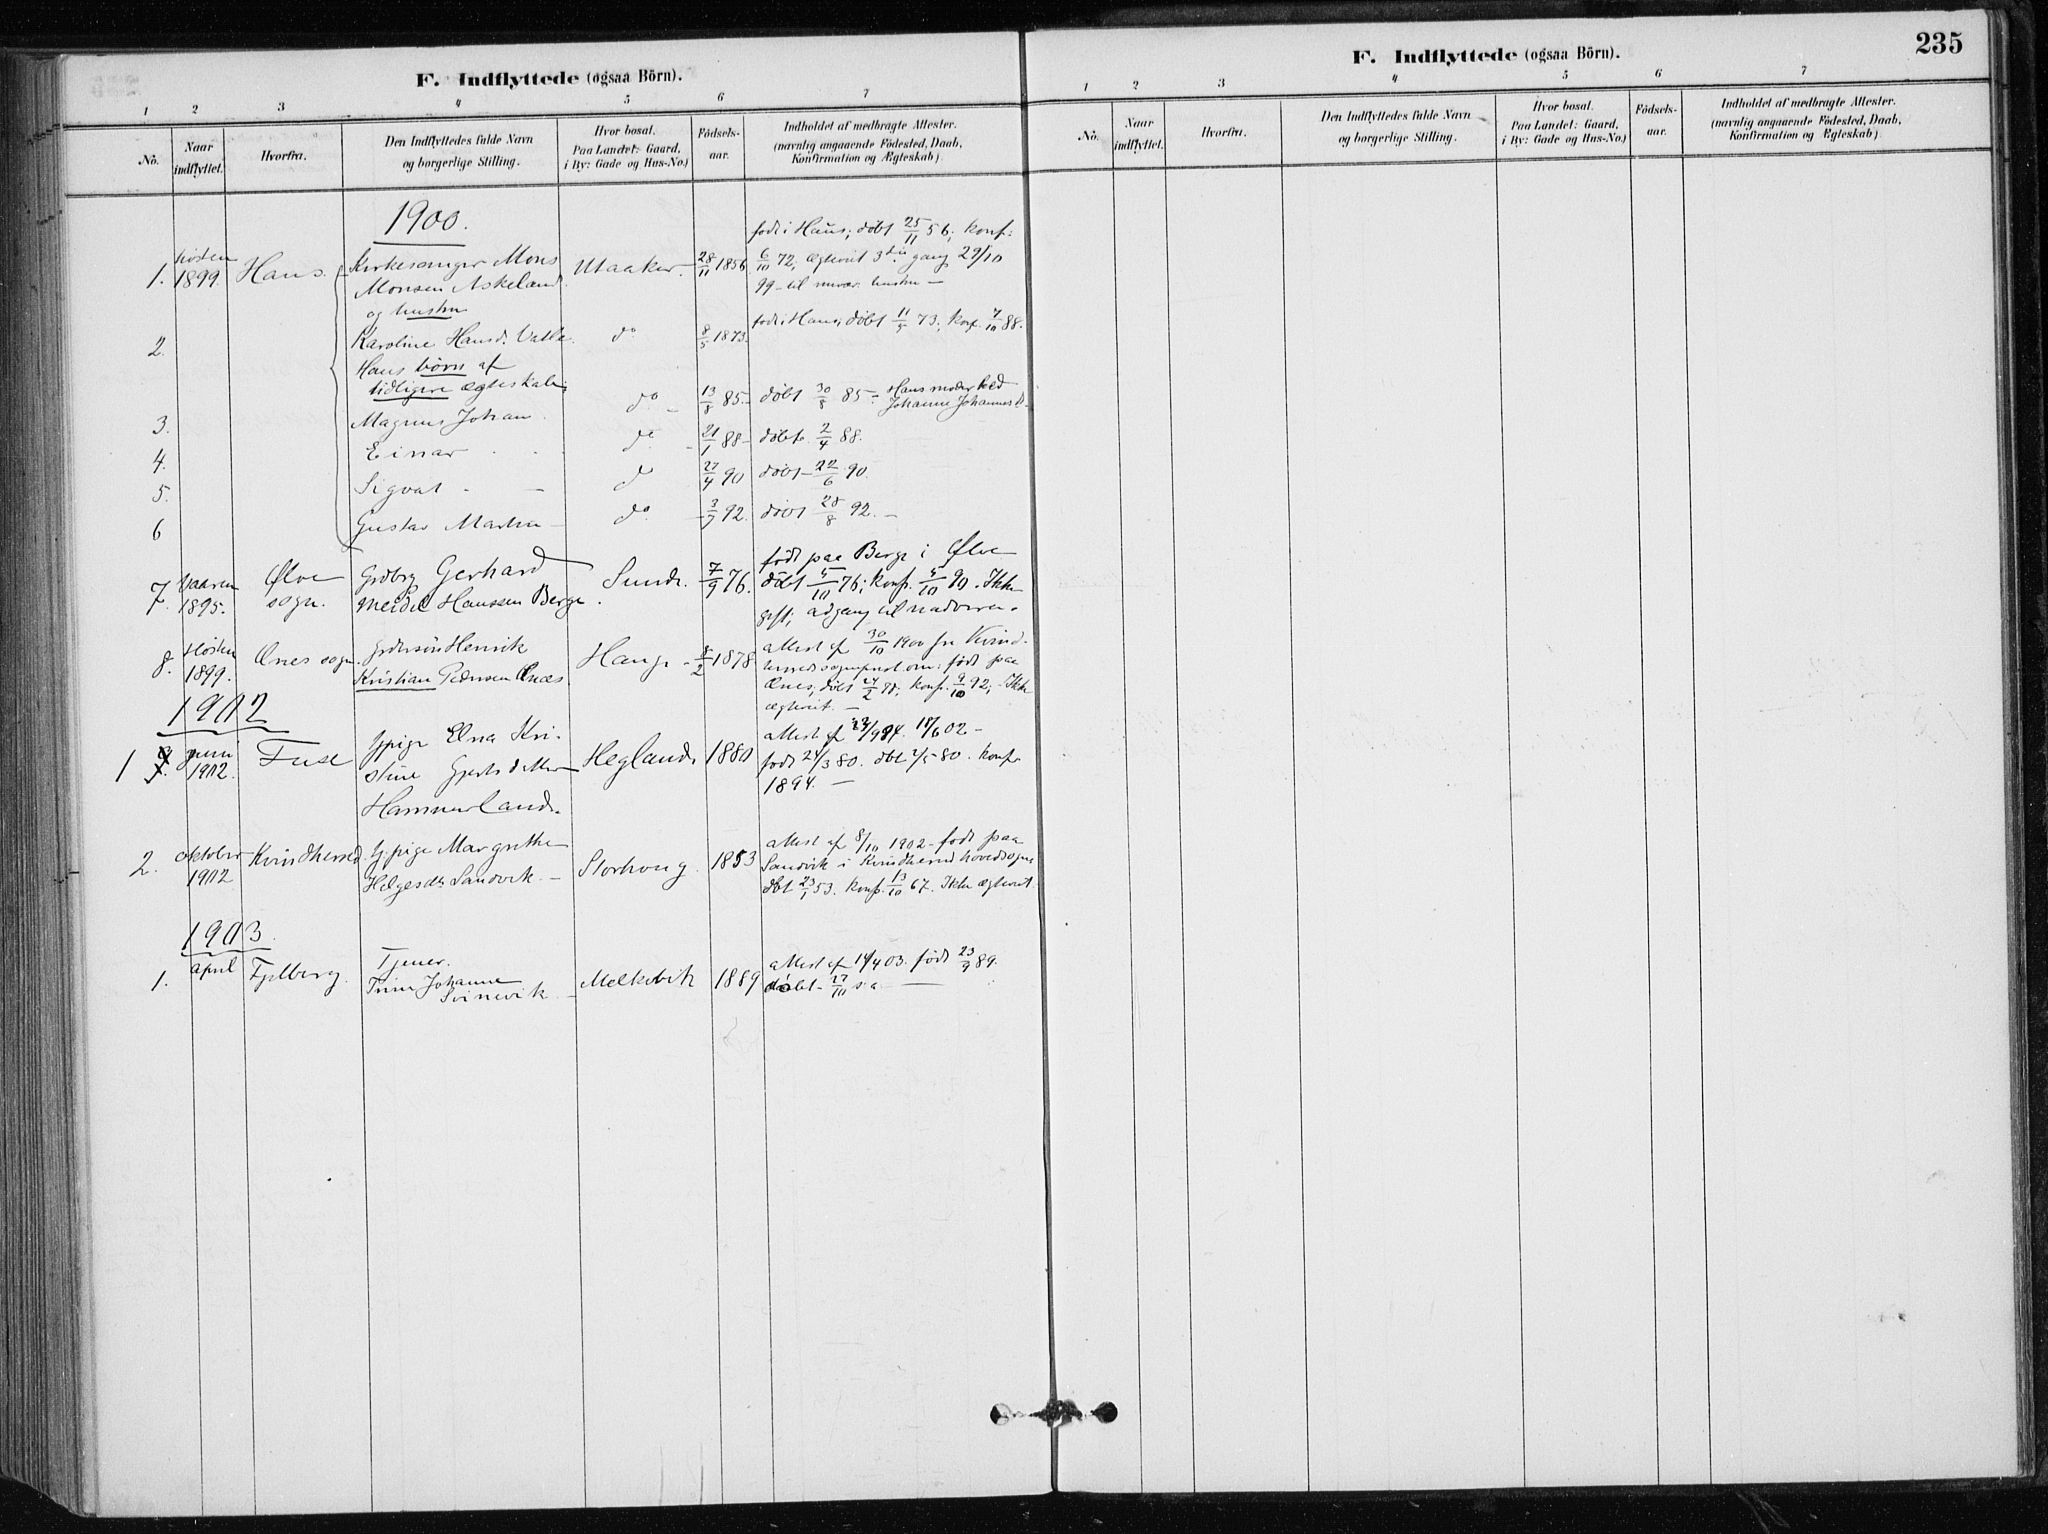 F. Indflyttede (ogsaa Börn).
1 2 3 4 5 6 7
No. Naar indflyttet. Hvorfra. Den Indflyttedes fulde Navn og borgerlige Stilling. Hvor bosat. Paa Landet: Gaard, i By: Gade og Hus-No.) Födsels-aar. Indholdet af medbragte Attester. (navnlig angaaende Födested, Daab, Konfirmation og Ægteskab)
1900.
født i Haus; døbt 25/11 56; konf:
1. høsten 1899. Haus Kirkesanger Mons Utaaker 28/11 1856 6/10 72, ægteviet 3die gang 29/10
Monsen Askeland 99 til nuvær. hustru
og hustru
2. Karoline Hansd. Valle do 8/5 1873 født i Haus; døbt 11/5 73; konf. 7/10 88.
Hans børn af
tidligere ægteskab:
3. Magnus Johan do 13/8 85. døbt 30/8 85 Hans moder hed Johanne Johannesd.
4. Einar do 21/1 88 døbt 2/4 88.
5. Sigvat do 27/4 90 døbt 22/6 90.
6 Gustav Martin do. 3/7 92. døbt 28/8 92.
7. Vaaren 1895. Ølve sogn. Grdbrg Gerhard Sunde. 7/9 76. født paa Berge i Ølve
Meidel Hanssen Berge døbt 5/10 76; konf. 5/10 90. Ikke
gift; adgang til nadveren.
8. Høsten 1899. Ænes sogn. Henrik Hauge 8/2 1878 attest af 30/10 1900 fra Kvind-
Kristian Pedersen Ænæs herred om: født paa
Ænes, døbt 24/2 78; konf. 9/10 92; Ikke
ægteviet.
1902
1 juni 1902. Fuse Gpige Elna Kri- Hegland 1880 attest af 18/6 02
stine født 24/3 80. dbt 2/5 80. konf.
Hammerland. 1894.
2. oktober 1902 Kvindherred. Gpige Margrethe Storhoug 1853 attest af 8/10 1902 født paa
Helgesdtr Sandvik. Sandvik i Kvindherred hovedsogn
døbt 53. konf. 13/10 67. Ikke ægteviet
1903
1. april Fjelberg. Tjener. Melkevik 1889 attest af 14/4 03. født 23/9 89.
Johanne Svinevik døbt 27/10 s.a.
235
F. Indflyttede (ogsaa Börn).
1 2 3 4 5 6 7
No. Naar indflyttet. Hvorfra. Den Indflyttedes fulde Navn og borgerlige Stilling. Hvor bosat. Paa Landet: Gaard, i By: Gade og Hus-No.) Födsels-aar. Indholdet af medbragte Attester. (navnlig angaaende Födested, Daab, Konfirmation og Ægteskab)